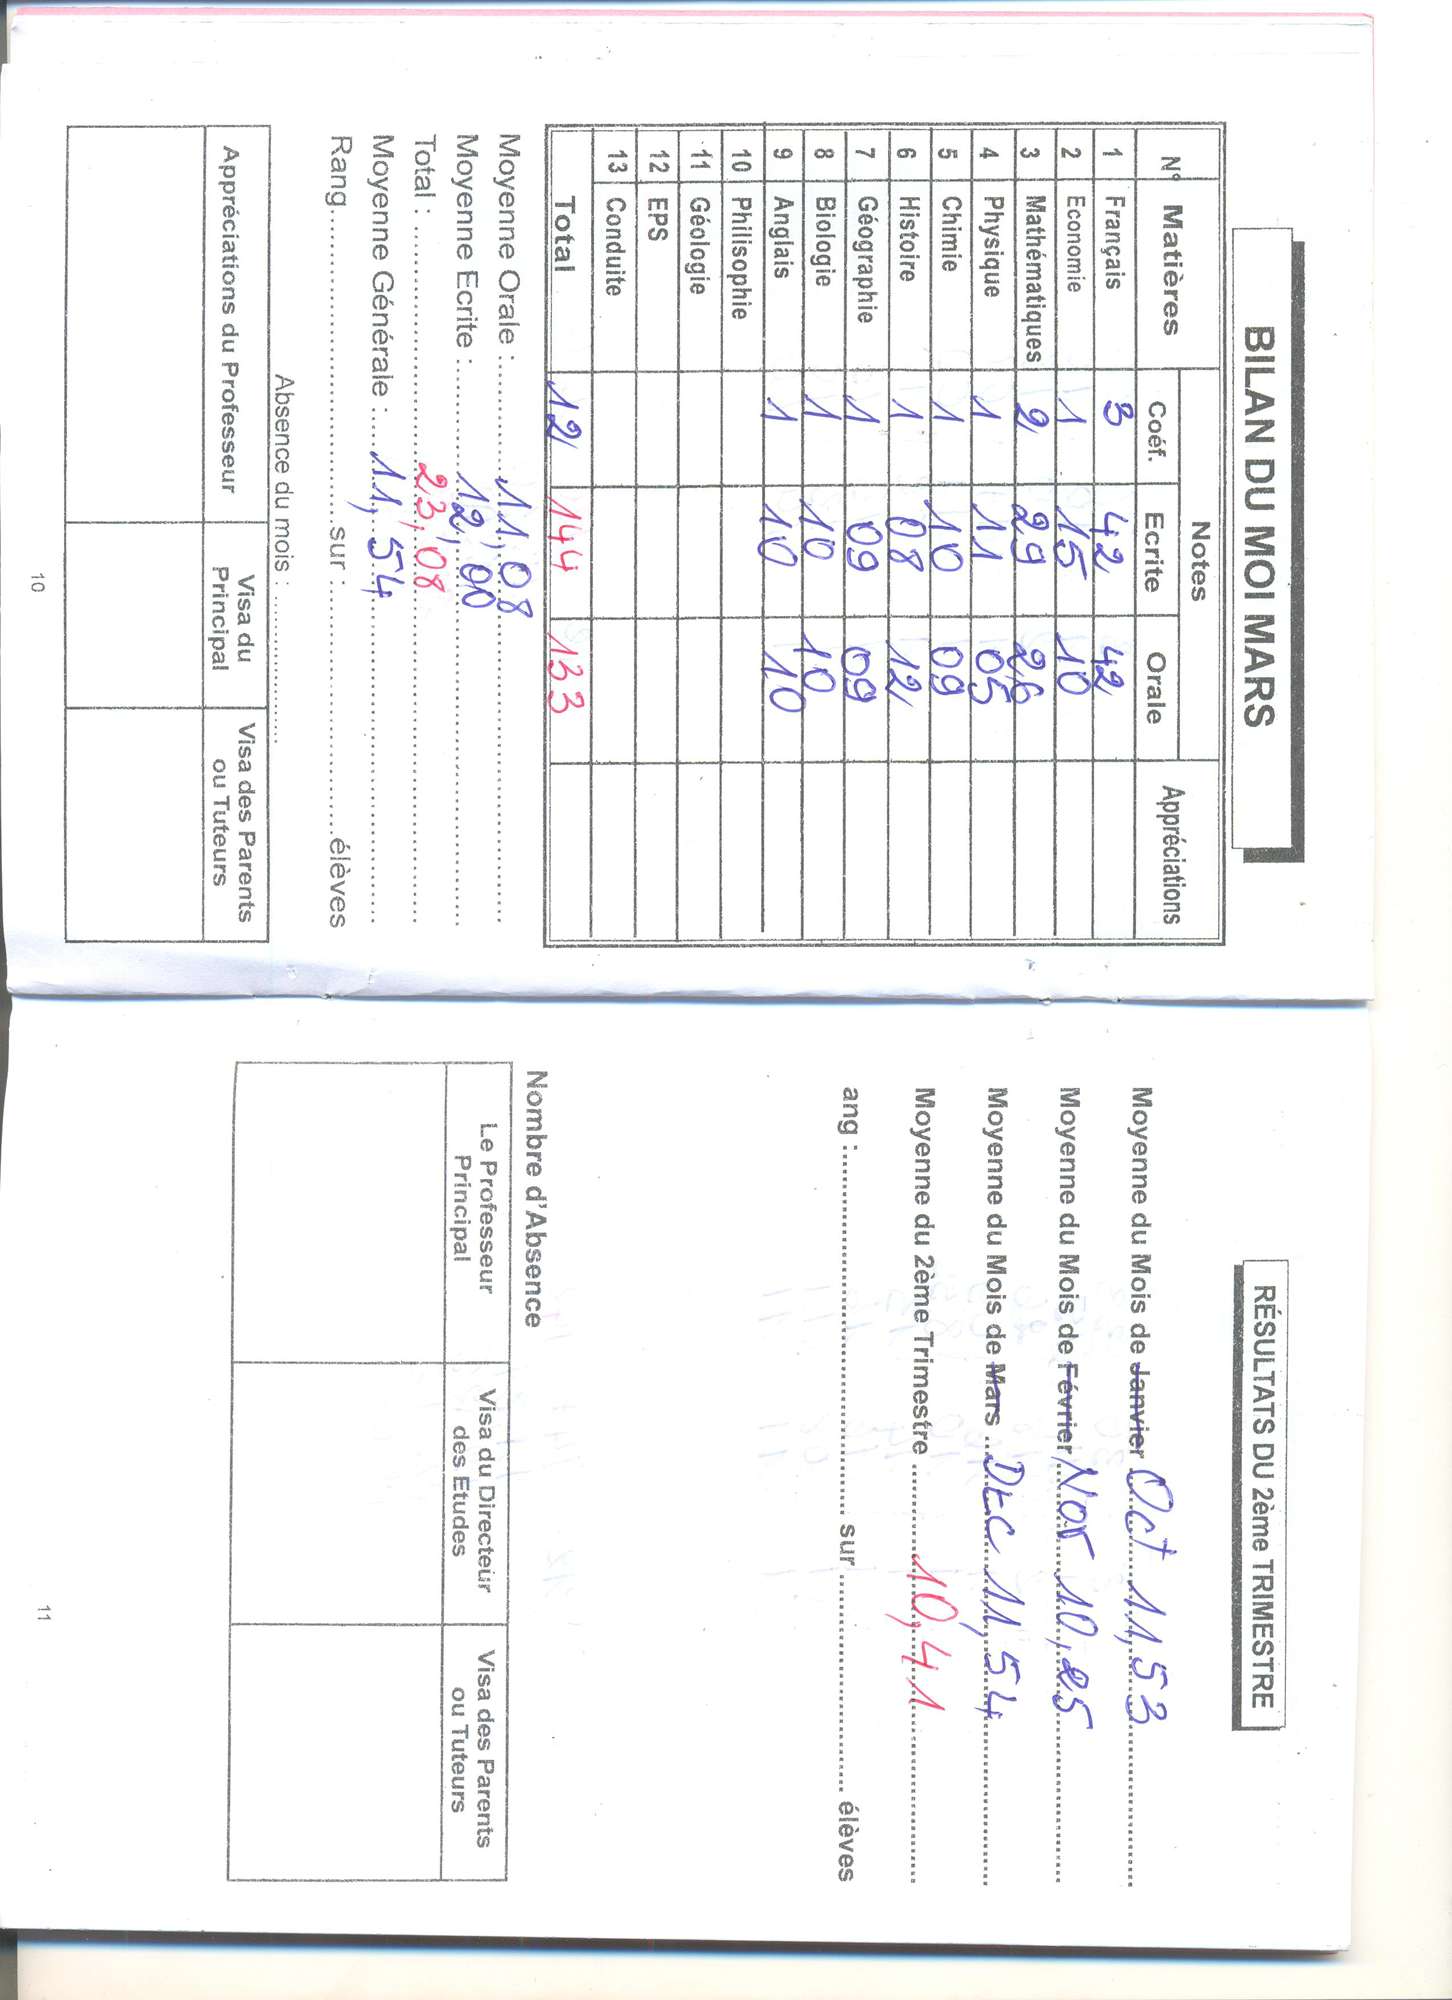 BILAN DU MOI MARS
N° Matières Notes Appréciations
Coéf. Ecrite Orale
1 Français 3 42 42
2 Economie 1 15 10
3 Mathématiques 2 29 26
4 Physique 1 11 05
5 Chimie 1 10 09
6 Histoire 1 08 12
7 Géographie 1 09 09
8 Biologie 1 10 10
9 Anglais 1 10 10
10 Philisophie
11 Géologie
12 EPS
13 Conduite
Total 12 144 133
Moyenne Orale : 11,08
Moyenne Ecrite : 12,00
Total : 23,08
Moyenne Générale : 11,54
Rang sur : élèves
Absence du mois :
Appréciations du Professeur Visa du Principal Visa des Parents ou Tuteurs
10
RÉSULTATS DU 2ème TRIMESTRE
Moyenne du Mois de Janvier Oct 11,53
Moyenne du Mois de Février Nov 10,25
Moyenne du Mois de Mars DEC 11,54
Moyenne du 2ème Trimestre 10,41
ang : sur élèves
Nombre d'Absence
Le Professeur Principal Visa du Directeur des Etudes Visa des Parents ou Tuteurs
11